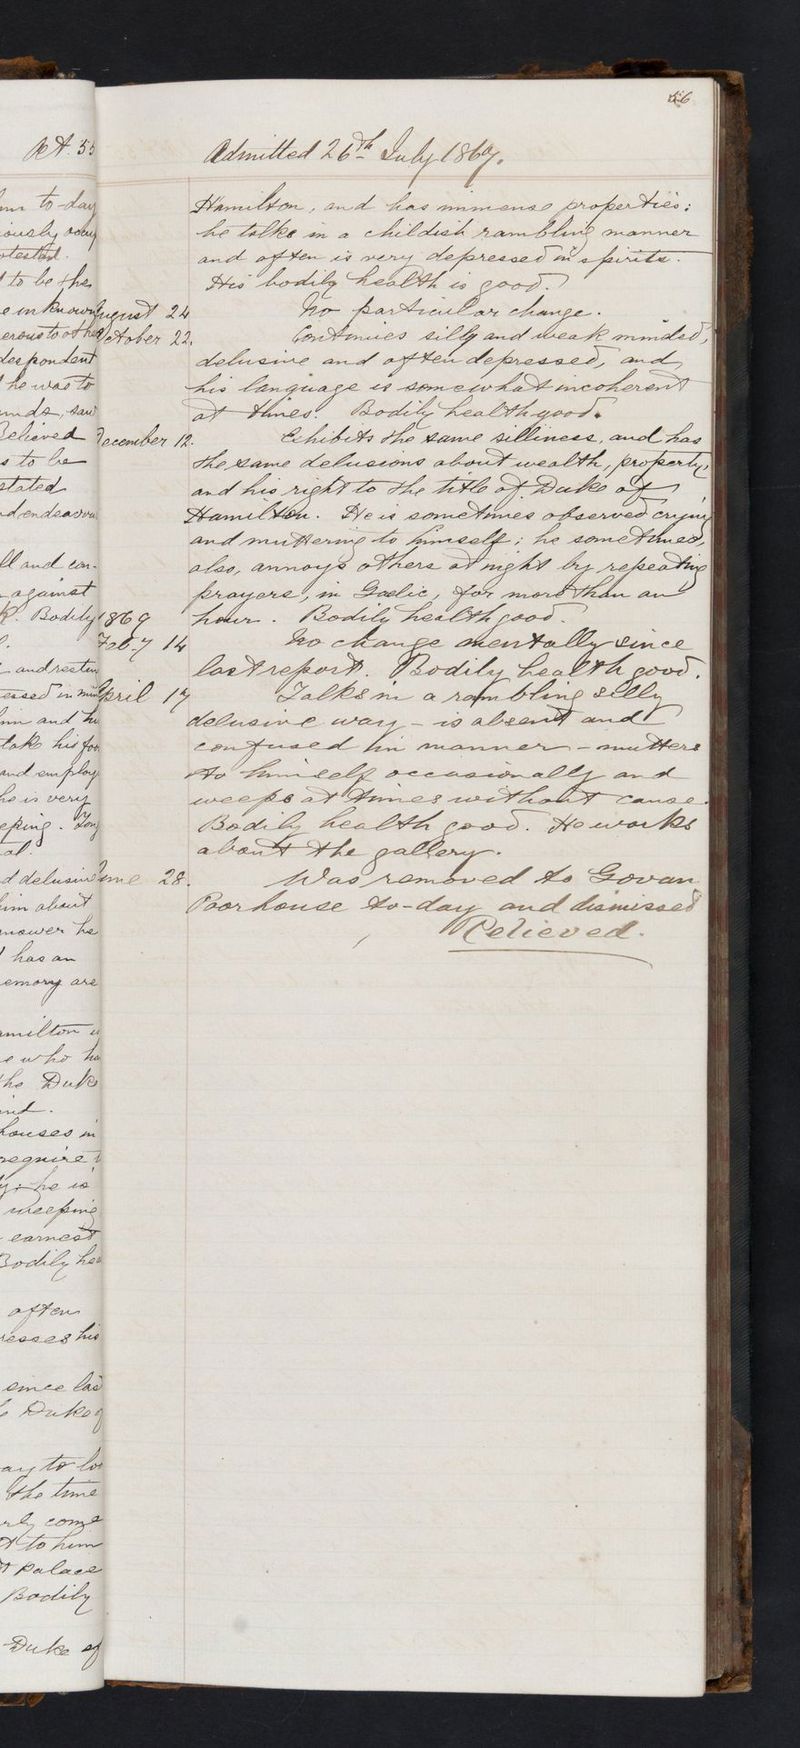 56
Æt. 55
Admitted 26th July 1867.
Hamilton, and has immense properties:
he talks in a childish rambling manner
and often is very depressed in spirits.
His bodily health is good.
August 24 No particular change.
October 22. Continues silly and weak minded,
delusive and often depressed, and
his language is somewhat incoherent
at times. Bodily health good.
December 12. Exhibits the same silliness, and has
the same delusions about wealth, property,
and his right to the title of Duke of
Hamilton. He is sometimes observed crying
and muttering to himself; he sometimes,
also, annoys others at night by repeating
prayers, in Gaelic, for more than an
hour. Bodily health good.
1869
Feb.y 14 No change mentally since
last report. Bodily health good.
April 17 Talks in a rambling silly
delusive way – is absent and
confused in manner – mutters
to himself occasionally and
weeps at times without cause.
Bodily health good. He works
about the gallery.
June 28. Was removed to Govan
Poorhouse to-day and dismissed
Relieved.
to-day
to be the
despondent
he was to
Believed
s to be
stated
ll and con-
against
Bodily
and
take his foo
and employ
he is very
d delusive
him about
has an
emory are
amilton
e who
the Duke
houses in
require
he is
weeping
earnest
Bodily
often
resses his
since las
Duke
ay to
the time
come
to him
Palace
Bodily
Duke of